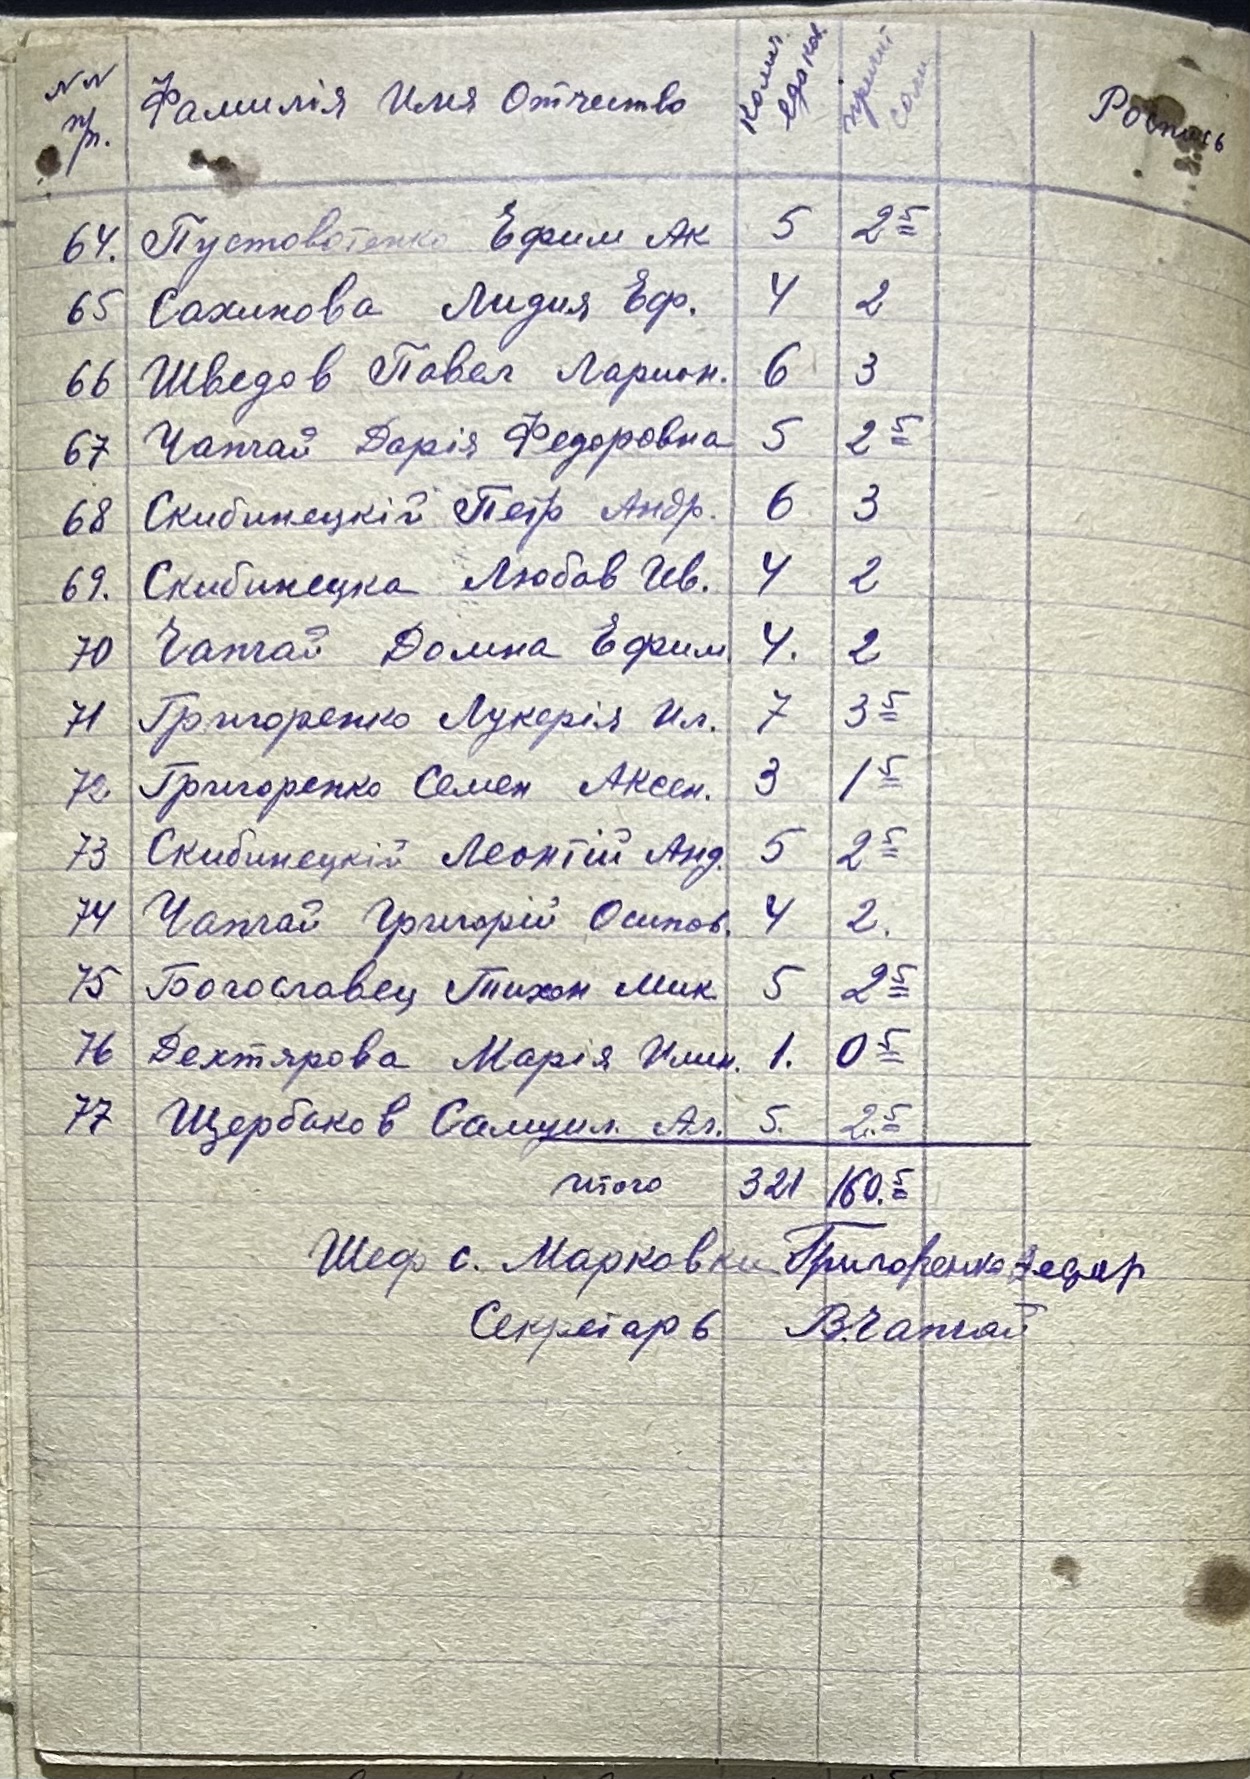 NN п/п. Фамилія Имя Отчество Колич. едоков. соли Роспись
64. Пустовотенко Ефим Ак 5 2 5
65 Сахинова Лидия Еф. 4 2
66 Шведов Павел Ларион. 6 3
67 Чапчай Дарія Федоровна 5 2 5
68 Скибинецкій Петр Андр. 6 3
69. Скибинецка Любов Ив. 4 2
70 Чапчай Домна Ефим 4. 2
71 Григоренко Лукерія Ил. 7 3 5
72 Григоренко Семен Аксен. 3 1 5
73 Скибинецкій Леонтій Анд. 5 2 5
74 Чапчай Григорій Осипов. 4 2.
75 Богославец Тихон Мик 5 2 5
76 Дехтярова Марія 1. 0 5
77 Щербаков Самуил. Ал. 5. 2. 5
итого 321 160. 5
Шеф с. Марковки Григоренко
Секретарь В. Чапчай